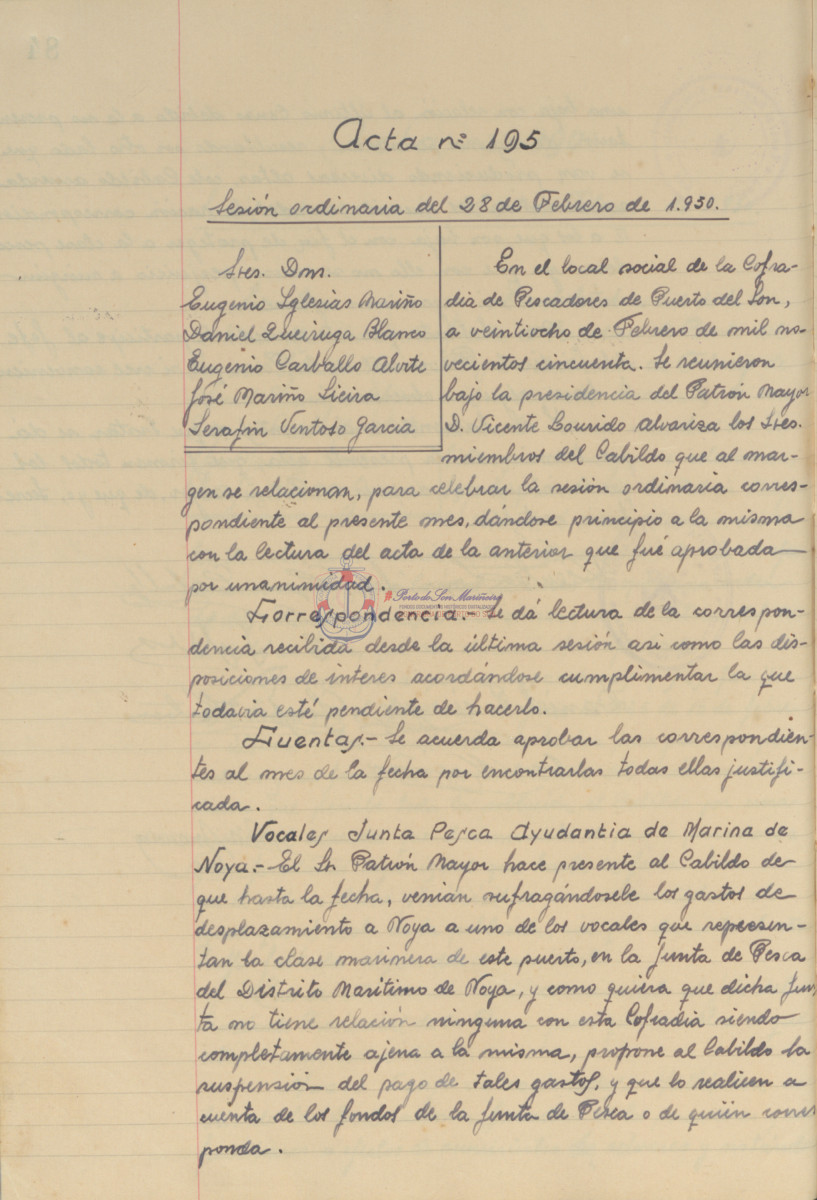 Acta nº 195
Sesión ordinaria del 28 de Febrero de 1.950.
Sres. Dnr.
Eugenio Yglesias Mariño
Daniel Queiruga Blanco
Eugenio Carballo Alvite
José Mariño Sieira
Serafin Ventoso Garcia
En el local social de la Cofra-
dia de Pescadores de Puerto del Son,
a veintiocho de Febrero de mil no-
vecientos cincuenta. Se reunieron
bajo la presidencia del Patrón Mayor
D. Vicente Lourido Alvariza los Sres.
miembros del Cabildo que al mar-
gen se relacionan, para celebrar la sesión ordinaria corres-
pondiente al presente mes, dándose principio a la misma
con la lectura del acta de la anterior que fué aprobada
por unanimidad.
Porto do Son Mariñeiro
Correspondencia.- Se dá lectura de la correspon-
dencia recibida desde la última sesión asi como las dis-
posiciones de interes acordándose cumplimentar la que
todavia esté pendiente de hacerlo.
Cuentas.- Se acuerda aprobar las correspondien-
tes al mes de la fecha por encontrarlas todas ellas justifi-
cada.
Vocales Junta Pesca Ayudantia de Marina de
Noya.- El Sr Patrón Mayor hace presente al Cabildo de
que hasta la fecha, venian sufragándosele los gastos de
desplazamiento a Noya a uno de los vocales que represen-
tan la clase marinera de este puerto, en la Junta de Pesca
del Distrito Maritimo de Noya, y como quiera que dicha Jun-
ta no tiene relación ninguna con esta Cofradia siendo
completamente ajena a la misma, propone al Cabildo la
suspensión del pago de tales gastos, y que lo realicen a
cuenta de los fondos de la Junta de Pesca o de quién corres
ponda.